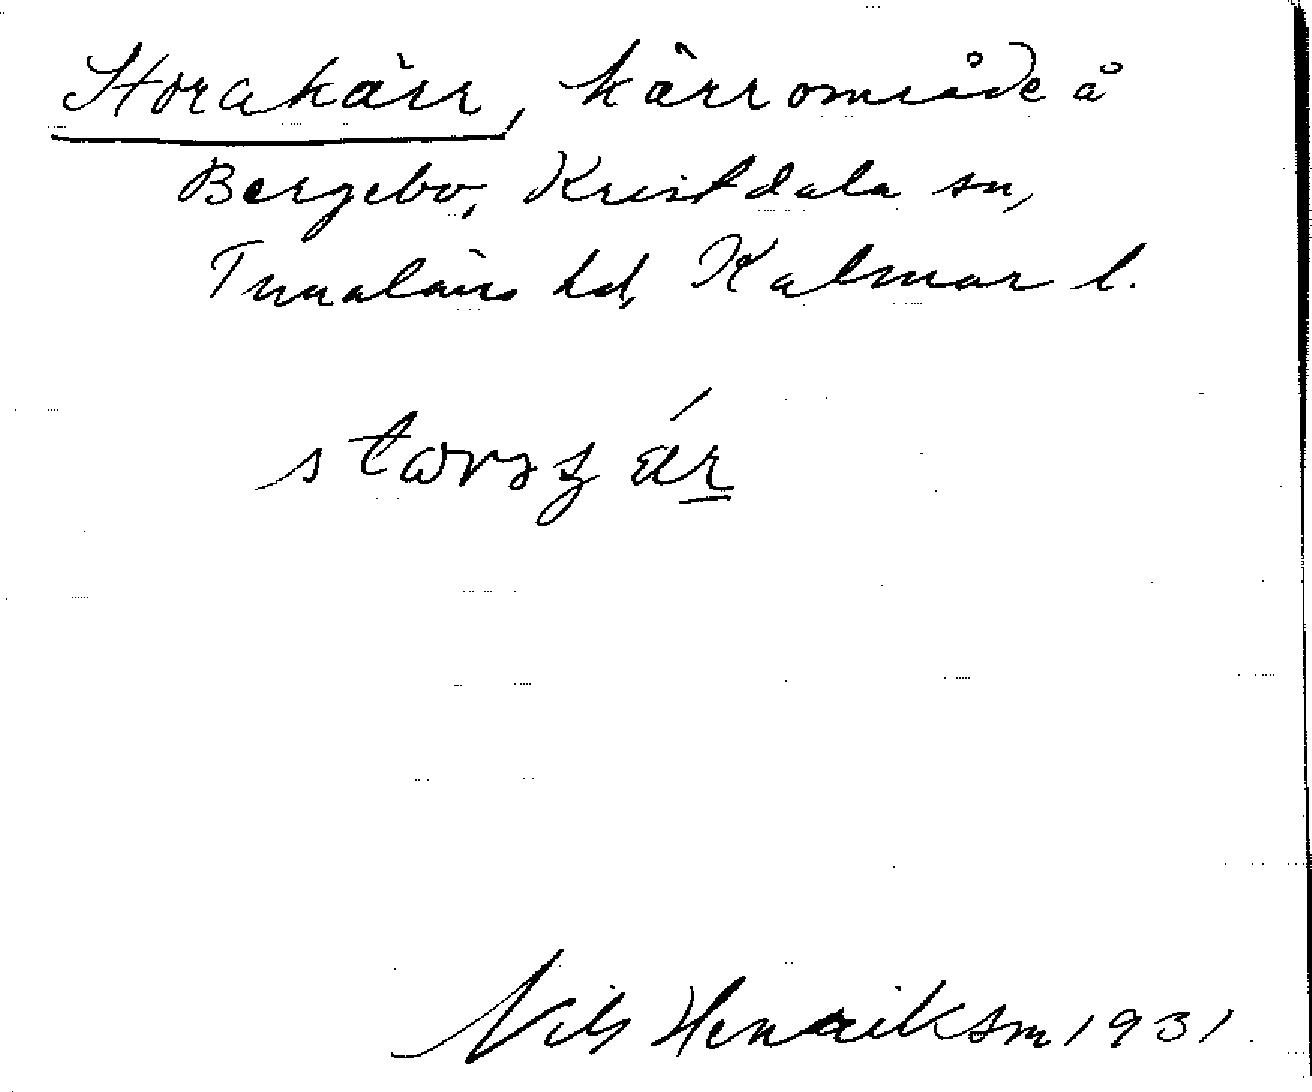 Storakärr, kärrområde å
Bergebo, Kristdala sn,
Tunaläns hd, Kalmar l.
Nils Henrikson 1931.